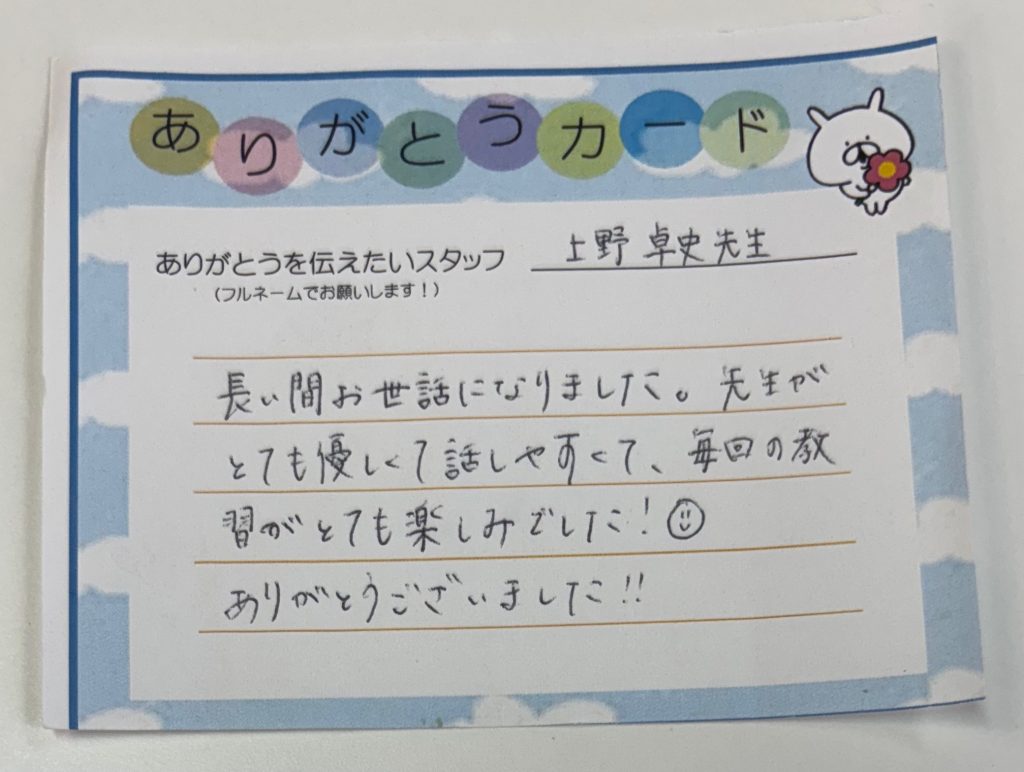 ありがとうカード
ありがとうを伝えたいスタッフ 上野 卓史先生
(フルネームでお願いします!)
長い間お世話になりました。先生が
とても優しくて話しやすくて、毎回の教
習がとても楽しみでした!
ありがとうございました!!